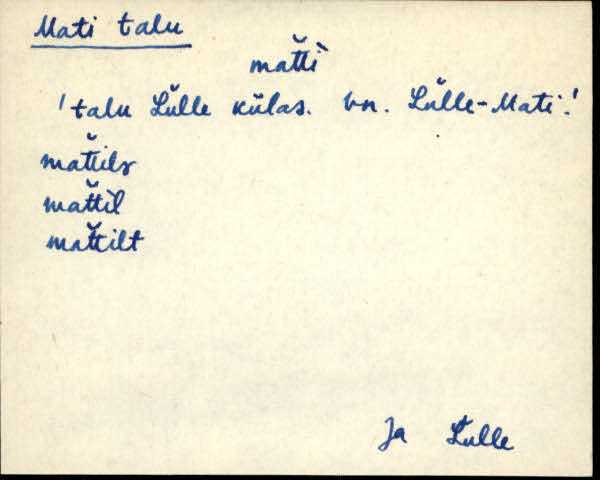 Mati talu
mat̆ti`
'talu Lülle külas. vn. Lülle-Mati.'
mat̆tilɜ
mat̆til
mat̆tilt
Ja Lülle